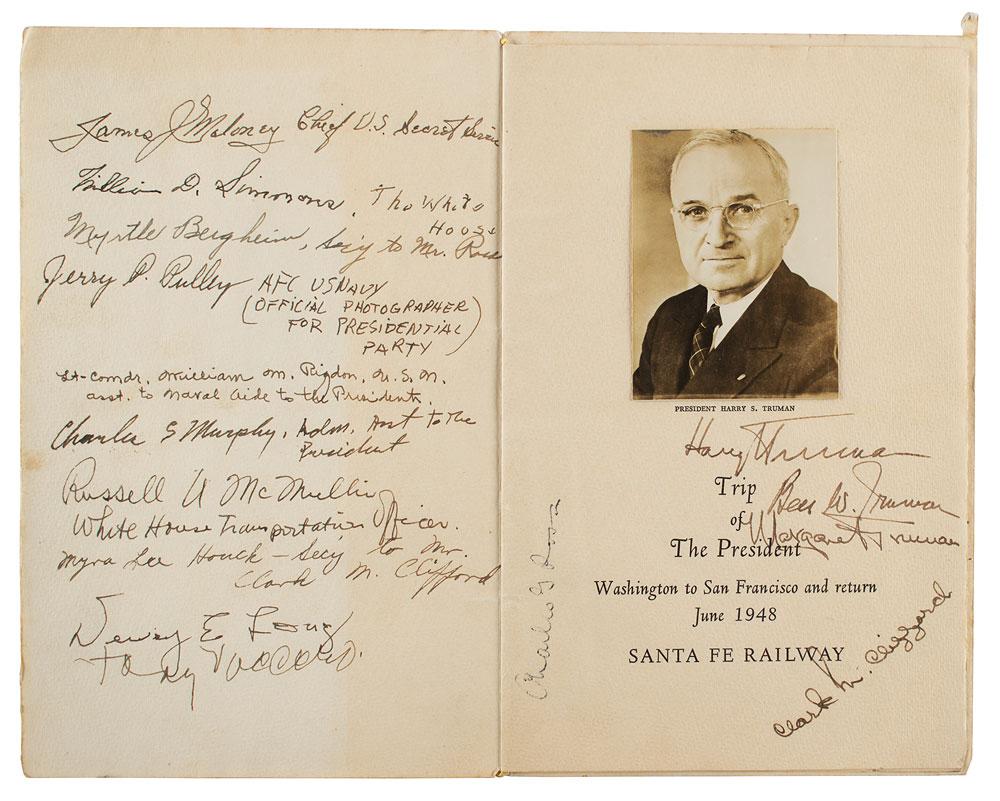 James J Maloney Chief U.S. Secret Service
William D. Simmons, The White
House
Myrtle Bergheim, Secy to Mr. Ross
Jerry P. Pulley AFC USNAVY
(OFFICIAL PHOTOGRAPHER
FOR PRESIDENTIAL
PARTY)
Lt-comdr. William M. Rigdon, U.S.N.
asst. to naval aide to the President.
Charles S Murphy, Adm. Asst to the
President
Russell McMullin
White House Transportation Officer.
Myra Lee Houck - Secy to Mr.
Clark M. Clifford
Dewey E Long
Tony Vaccaro
PRESIDENT HARRY S. TRUMAN
Harry Truman
Trip
Bess W. Truman
of
Margaret Truman
The President
Washington to San Francisco and return
June 1948
SANTA FE RAILWAY
Charles G Ross
Clark M. Clifford